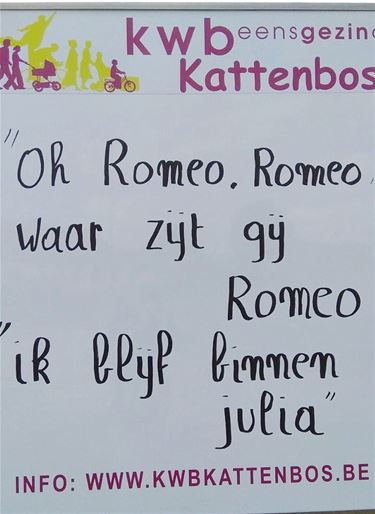 kwb eensgezind
Kattenbos
"Oh Romeo, Romeo,
waar zijt gij
Romeo
"ik blijf binnen
julia"
INFO: WWW.KWBKATTENBOS.BE